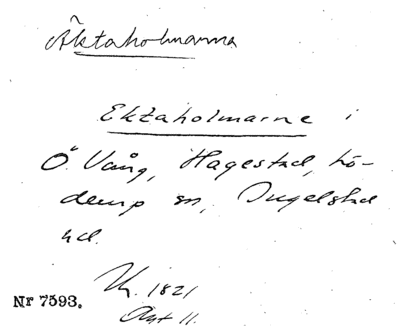 Äktaholmarna
Ektaholmarne i
Ö. Vång, Hagestad, Lö-
derup sn, Ingelstad
hd.
1821
Akt 11.
Nr 7593.